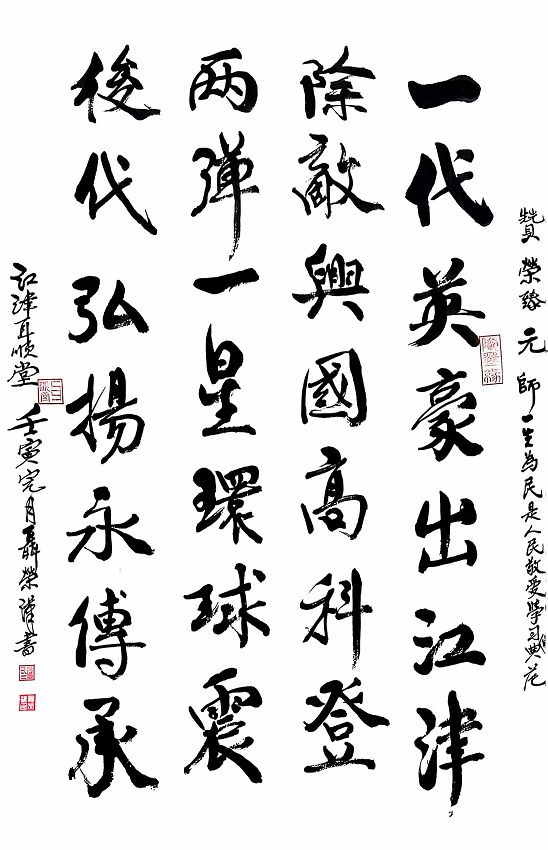 赞榮臻元師一生為民是人民敬爱學习典范
一代英豪出江津
除敵興國高科登
两弹一星環球震
後代弘揚永傳承
江津耳順堂壬寅完月聶榮澤書